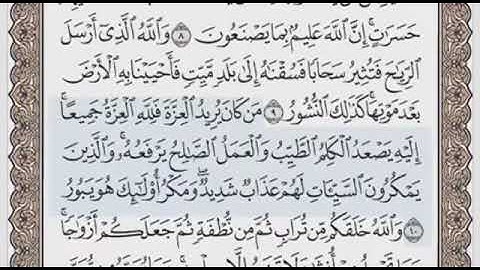 حَسَرَٰتٍۚ إِنَّ ٱللَّهَ عَلِيمُۢ بِمَا يَصۡنَعُونَ ٨ وَٱللَّهُ ٱلَّذِيٓ أَرۡسَلَ
ٱلرِّيَٰحَ فَتُثِيرُ سَحَابٗا فَسُقۡنَٰهُ إِلَىٰ بَلَدٖ مَّيِّتٖ فَأَحۡيَيۡنَا بِهِ ٱلۡأَرۡضَ
بَعۡدَ مَوۡتِهَاۚ كَذَٰلِكَ ٱلنُّشُورُ ٩ مَن كَانَ يُرِيدُ ٱلۡعِزَّةَ فَلِلَّهِ ٱلۡعِزَّةُ جَمِيعًاۚ
إِلَيۡهِ يَصۡعَدُ ٱلۡكَلِمُ ٱلطَّيِّبُ وَٱلۡعَمَلُ ٱلصَّٰلِحُ يَرۡفَعُهُۥۚ وَٱلَّذِينَ
يَمۡكُرُونَ ٱلسَّيِّـَٔاتِ لَهُمۡ عَذَابٞ شَدِيدٞۖ وَمَكۡرُ أُوْلَٰٓئِكَ هُوَ يَبُورُ
١٠ وَٱللَّهُ خَلَقَكُم مِّن تُرَابٖ ثُمَّ مِن نُّطۡفَةٖ ثُمَّ جَعَلَكُمۡ أَزۡوَٰجٗاۚ